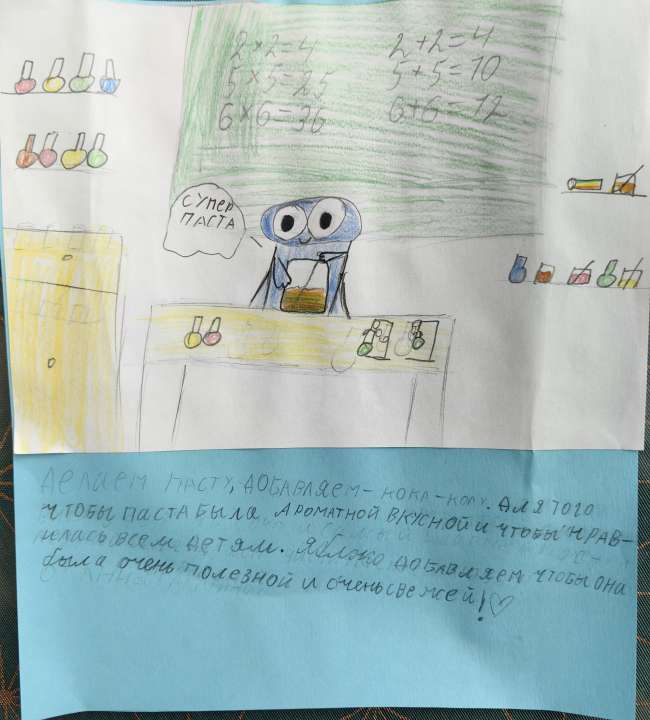 2×2=4
5×5=25
6×6=36
2+2=4
5+5=10
6+6=12
СУПЕР
ПАСТА
ДЕЛАЕМ ПАСТУ, ДОБАВЛЯЕМ-КОКА-КОЛУ. ДЛЯ ТОГО
ЧТОБЫ ПАСТА БЫЛА АРОМАТНОЙ ВКУСНОЙ И ЧТОБЫ НРАВ-
ИЛАСЬ ВСЕМ ДЕТЯМ. ЯБЛОКО ДОБАВЛЯЕМ ЧТОБЫ ОНА
БЫЛА ОЧЕНЬ ПОЛЕЗНОЙ И ОЧЕНЬ СВЕЖЕЙ! ♡